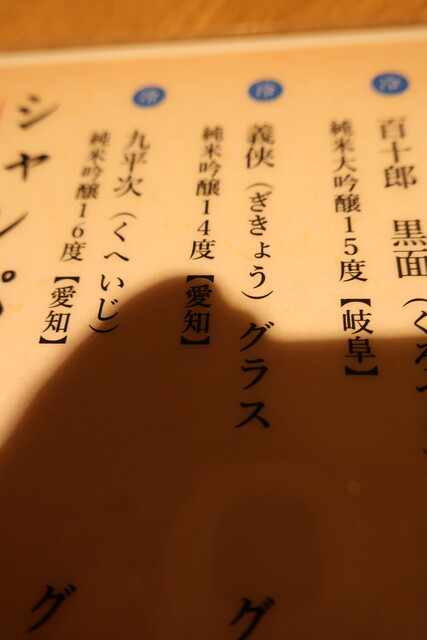 冷
百十郎 黒面（くろ
純米大吟醸15度【岐阜】
冷
義侠（ぎきょう）グラス
純米吟醸14度【愛知】
グ
冷
九平次（くへいじ）
純米吟醸16度【愛知】
グ
シャンパ